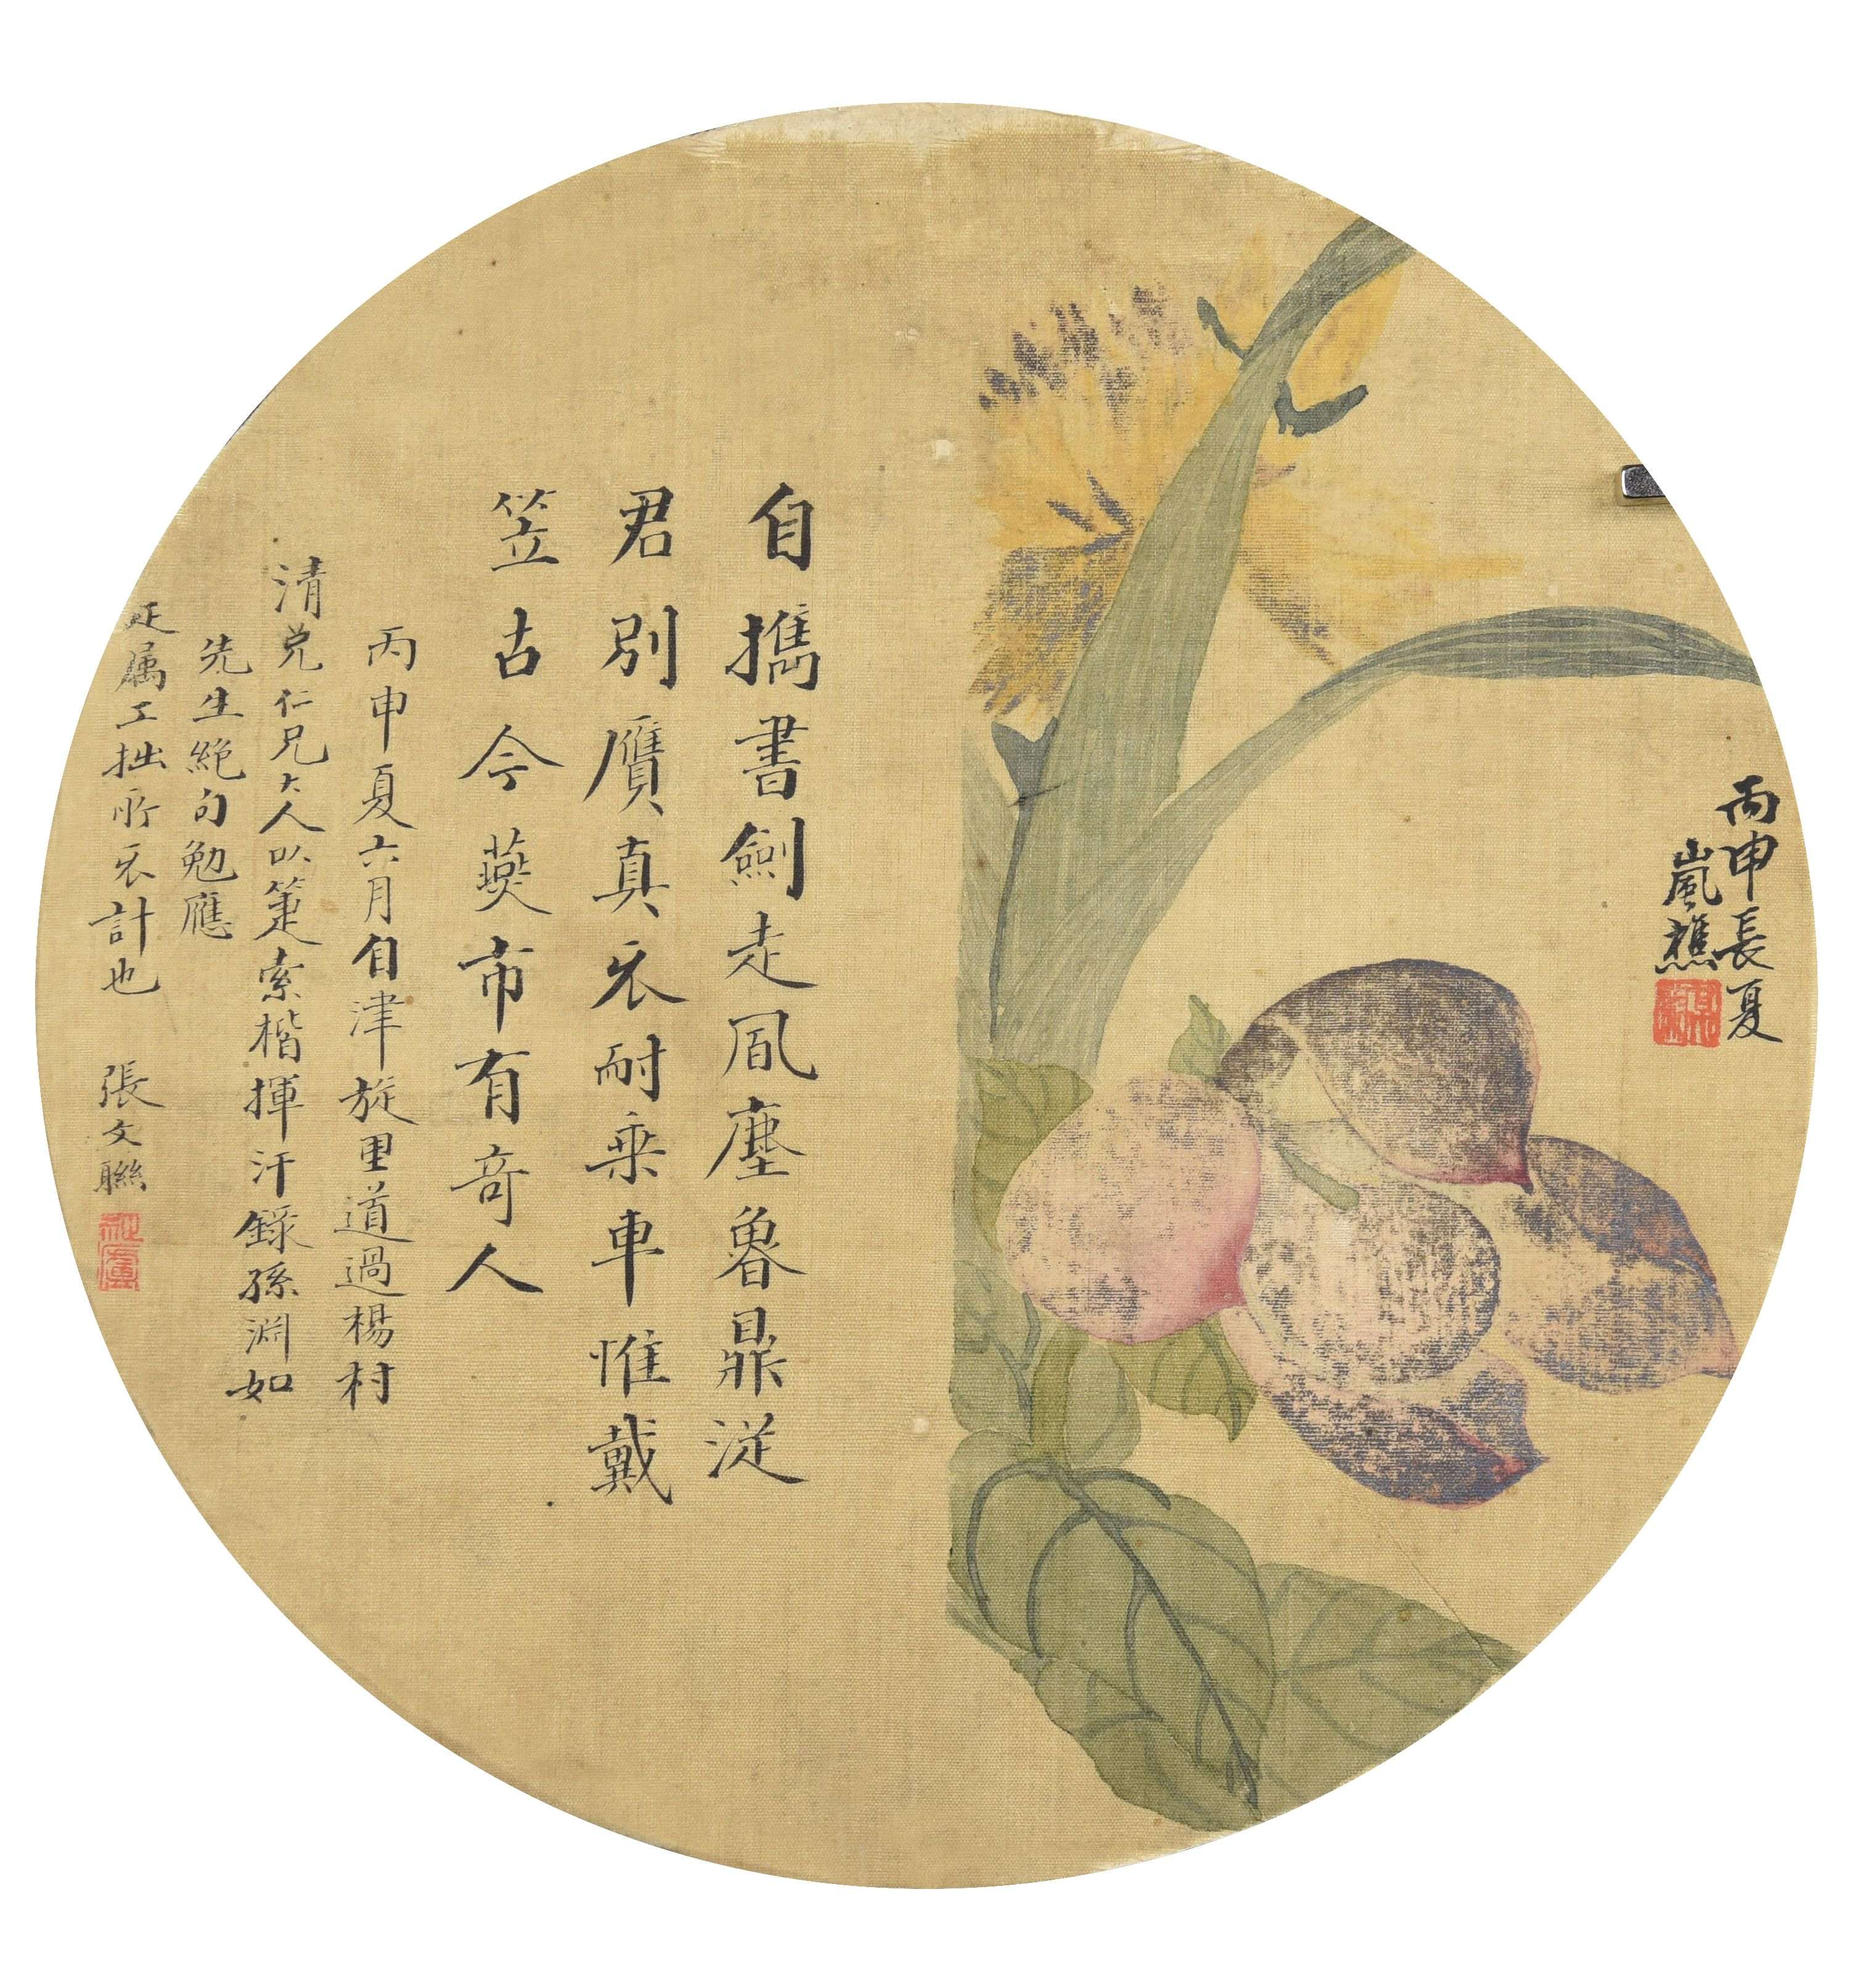 丙申長夏
嵐樵
自攜書劍走風塵魯鼎從
君別贋真衣耐乘車惟戴
笠古今燕市有奇人
丙申夏六月自津旋里道過楊村
清兌仁兄大人以箑索楷揮汗錄孫淵如
先生絕句勉應
疋属工拙所不計也 張文聯